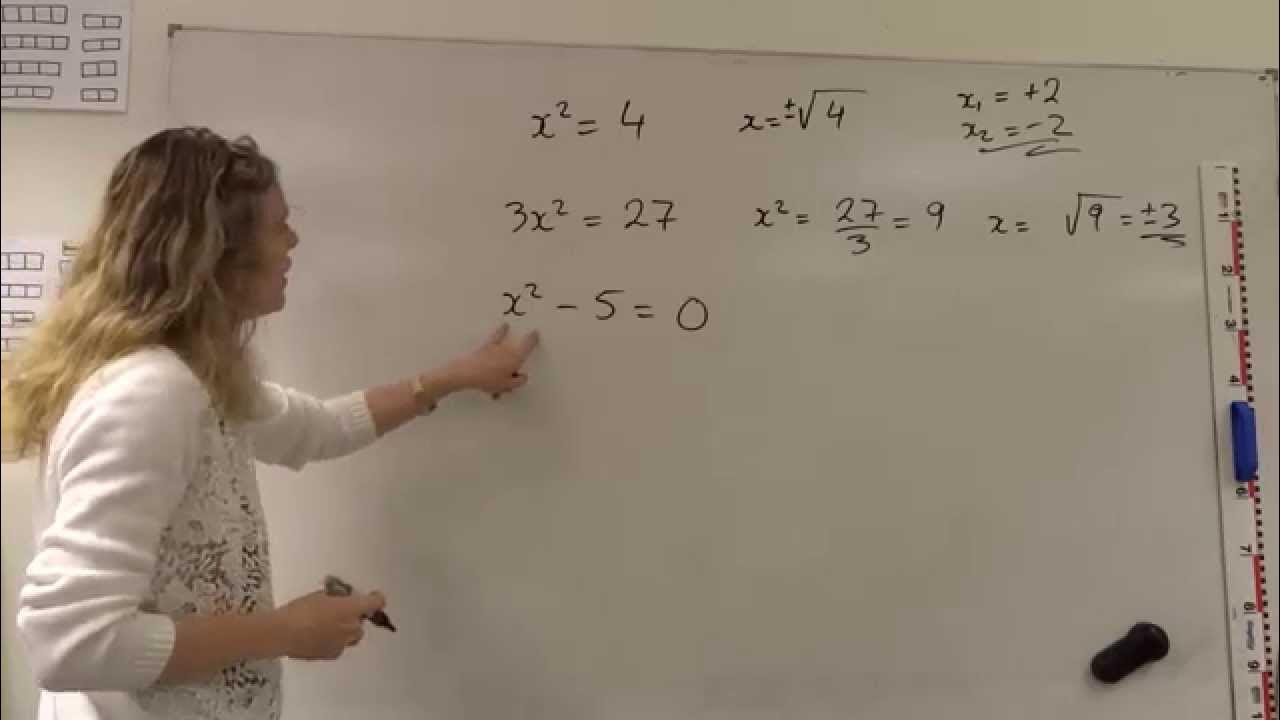 x² = 4 x = ±√4 x₁ = +2
x₂ = -2
3x² = 27 x² = 27/3 = 9 x = √9 = ±3
x² - 5 = 0
1
2
3
4
6
7
8
9